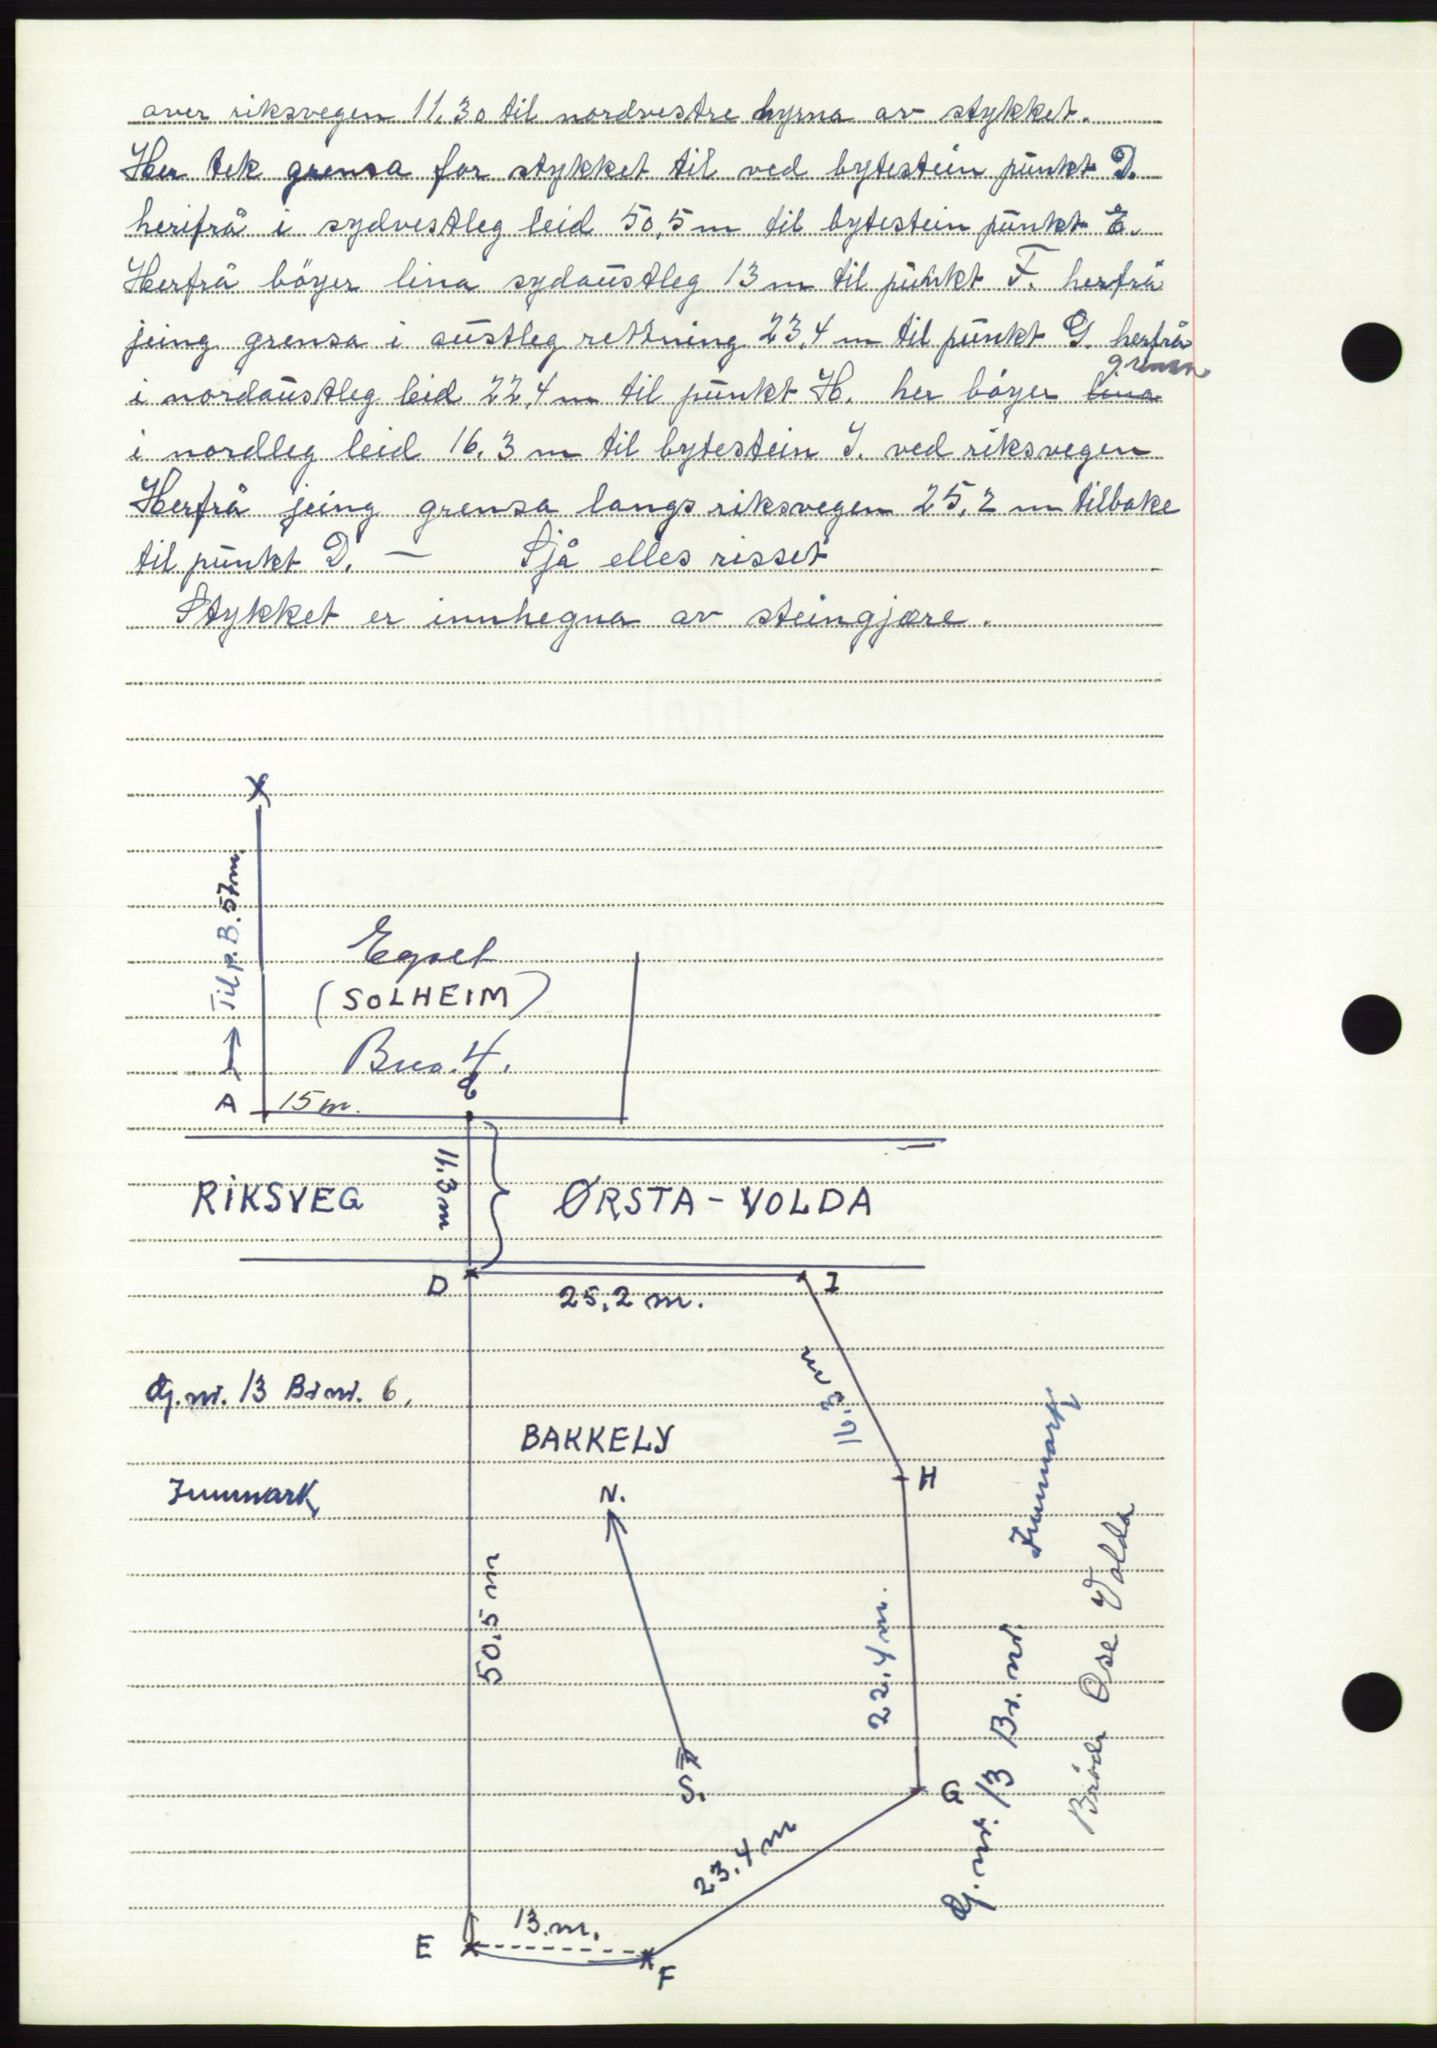 over riksvegen 11,30 til nordvestre hyrna av stykket.
Her tek grensa for stykket til ved bytestein punkt D.
herifrå i sydvestleg leid 50,5 m til bytestein punkt E.
Herfrå böyer lina sydaustleg 13 m til punkt F. herfrå
jeing grensa i austleg rettning 23,4 m til punkt G. herfrå
grensa
i nordaustleg leid 22,4 m til punkt H. her böyer lina
i nordleg leid 16,3 m til bytestein I. ved riksvegen
Herfrå jeing grensa langs riksvegen 25,2 m tilbake
til punkt D. — Sjå elles risset
Stykket er innhegna av steingjære.
X
Til p. B. 57 m.
Egset
(SOLHEIM)
Bno. 4.
A 15 m.
11,3 m
RIKSVEG ØRSTA - VOLDA
D I
25,2 m.
16,3 m
Gj. nr. 13 Br nr. 6.
BAKKELY
H
Innmark
N.
50,5 m
22,4 m.
S.
G
Gj. nr. 13 Br. nr.
Innmark
Ose Volda
23,4 m
13 m.
E
F